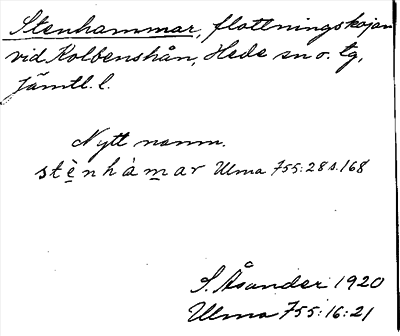 Stenhammar, flottningskojan
vid Kolbenshån, Hede sn o. tg,
Jämtl. l.
Nytt namn.
stènhàmar Ulma 755:28 s.168
S. Åsander 1920
Ulma 755:16:21